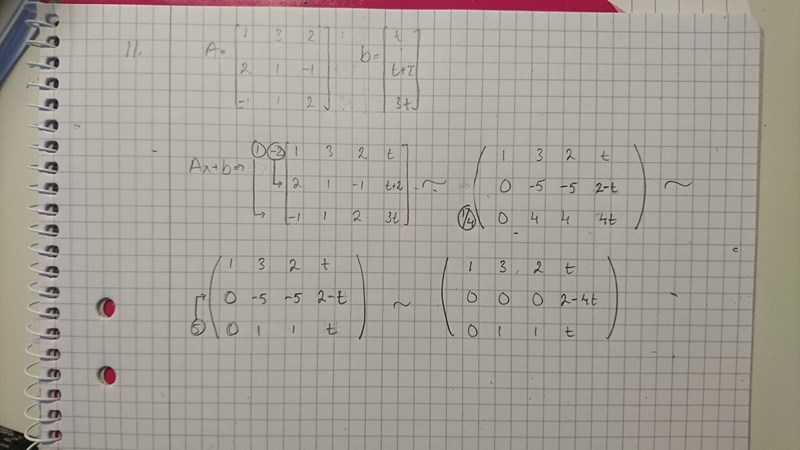 11. A= [1 3 2; 2 1 -1; -1 1 2] b= [t; t+2; 3t]
Ax+b⇒ ① (-2) [1 3 2 t; 2 1 -1 t+2; -1 1 2 3t] ~ (1 3 2 t; 0 -5 -5 2-t; (1/4) 0 4 4 4t) ~
(1 3 2 t; 0 -5 -5 2-t; ⑤ 0 1 1 t) ~ (1 3 2 t; 0 0 0 2-4t; 0 1 1 t)